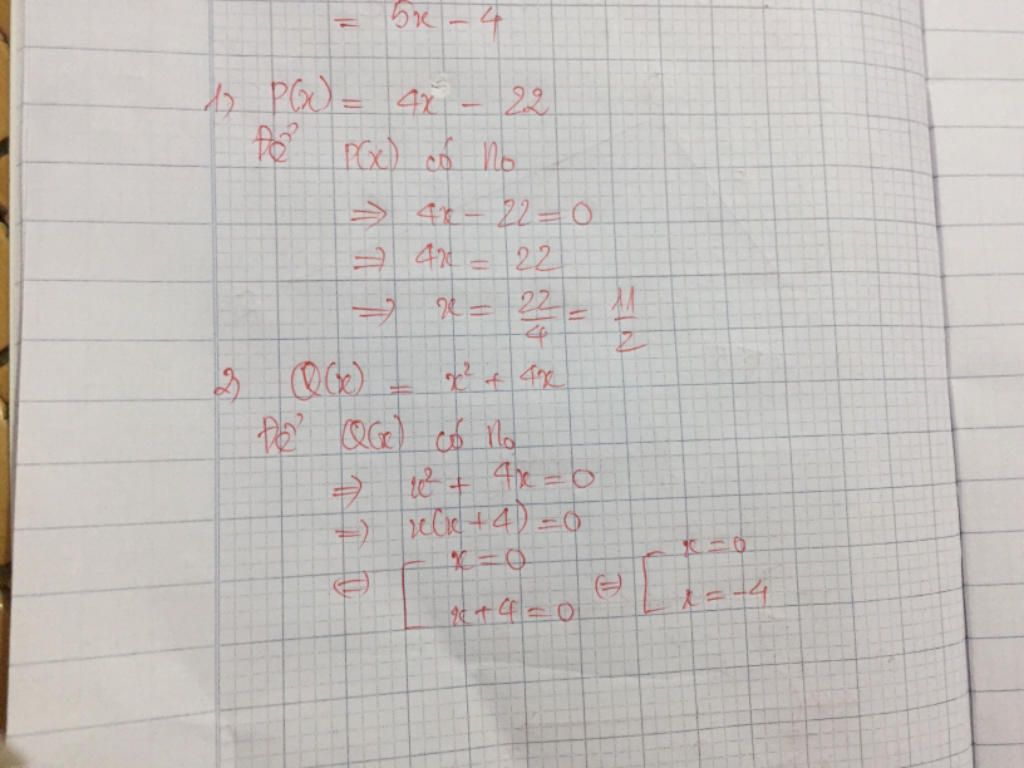 = 5x - 4
1) P(x) = 4x - 22
Để P(x) có n₀
⇒ 4x - 22 = 0
⇒ 4x = 22
⇒ x = 22/4 = 11/2
2) Q(x) = x² + 4x
Để Q(x) có n₀
⇒ x² + 4x = 0
⇒ x(x + 4) = 0
⇔ [ x = 0 ⇔ [ x = 0
x + 4 = 0 x = -4